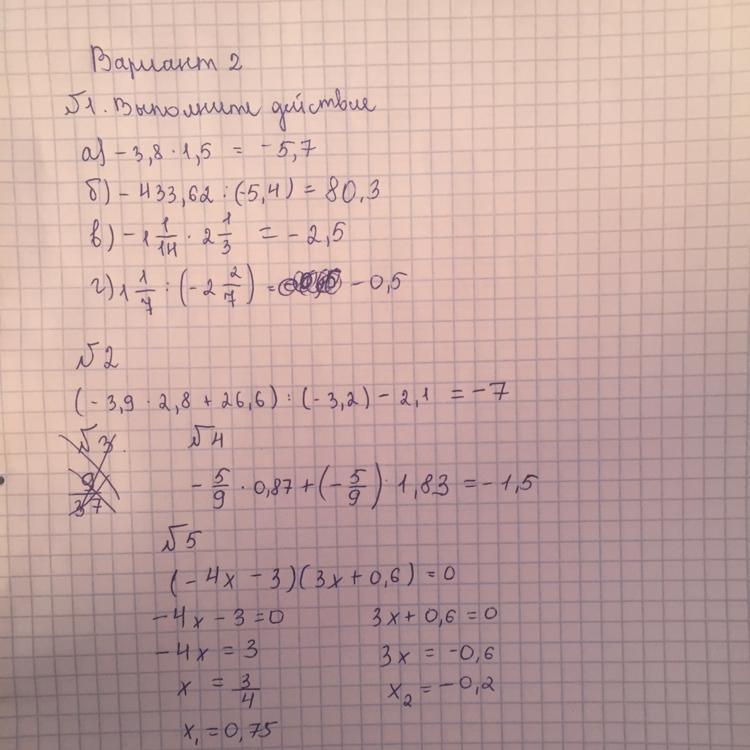 Вариант 2
№1. Выполните действие
а) -3,8 · 1,5 = -5,7
б) -433,62 : (-5,4) = 80,3
в) -1 1/14 · 2 1/3 = -2,5
г) 1 1/7 : (-2 2/7) = -0,5
№2
(-3,9 · 2,8 + 26,6) : (-3,2) - 2,1 = -7
№3. №4
9/37 -5/9 · 0,87 + (-5/9) · 1,83 = -1,5
№5
(-4x - 3)(3x + 0,6) = 0
-4x - 3 = 0 3x + 0,6 = 0
-4x = 3 3x = -0,6
x = 3/4 x₂ = -0,2
x₁ = 0,75